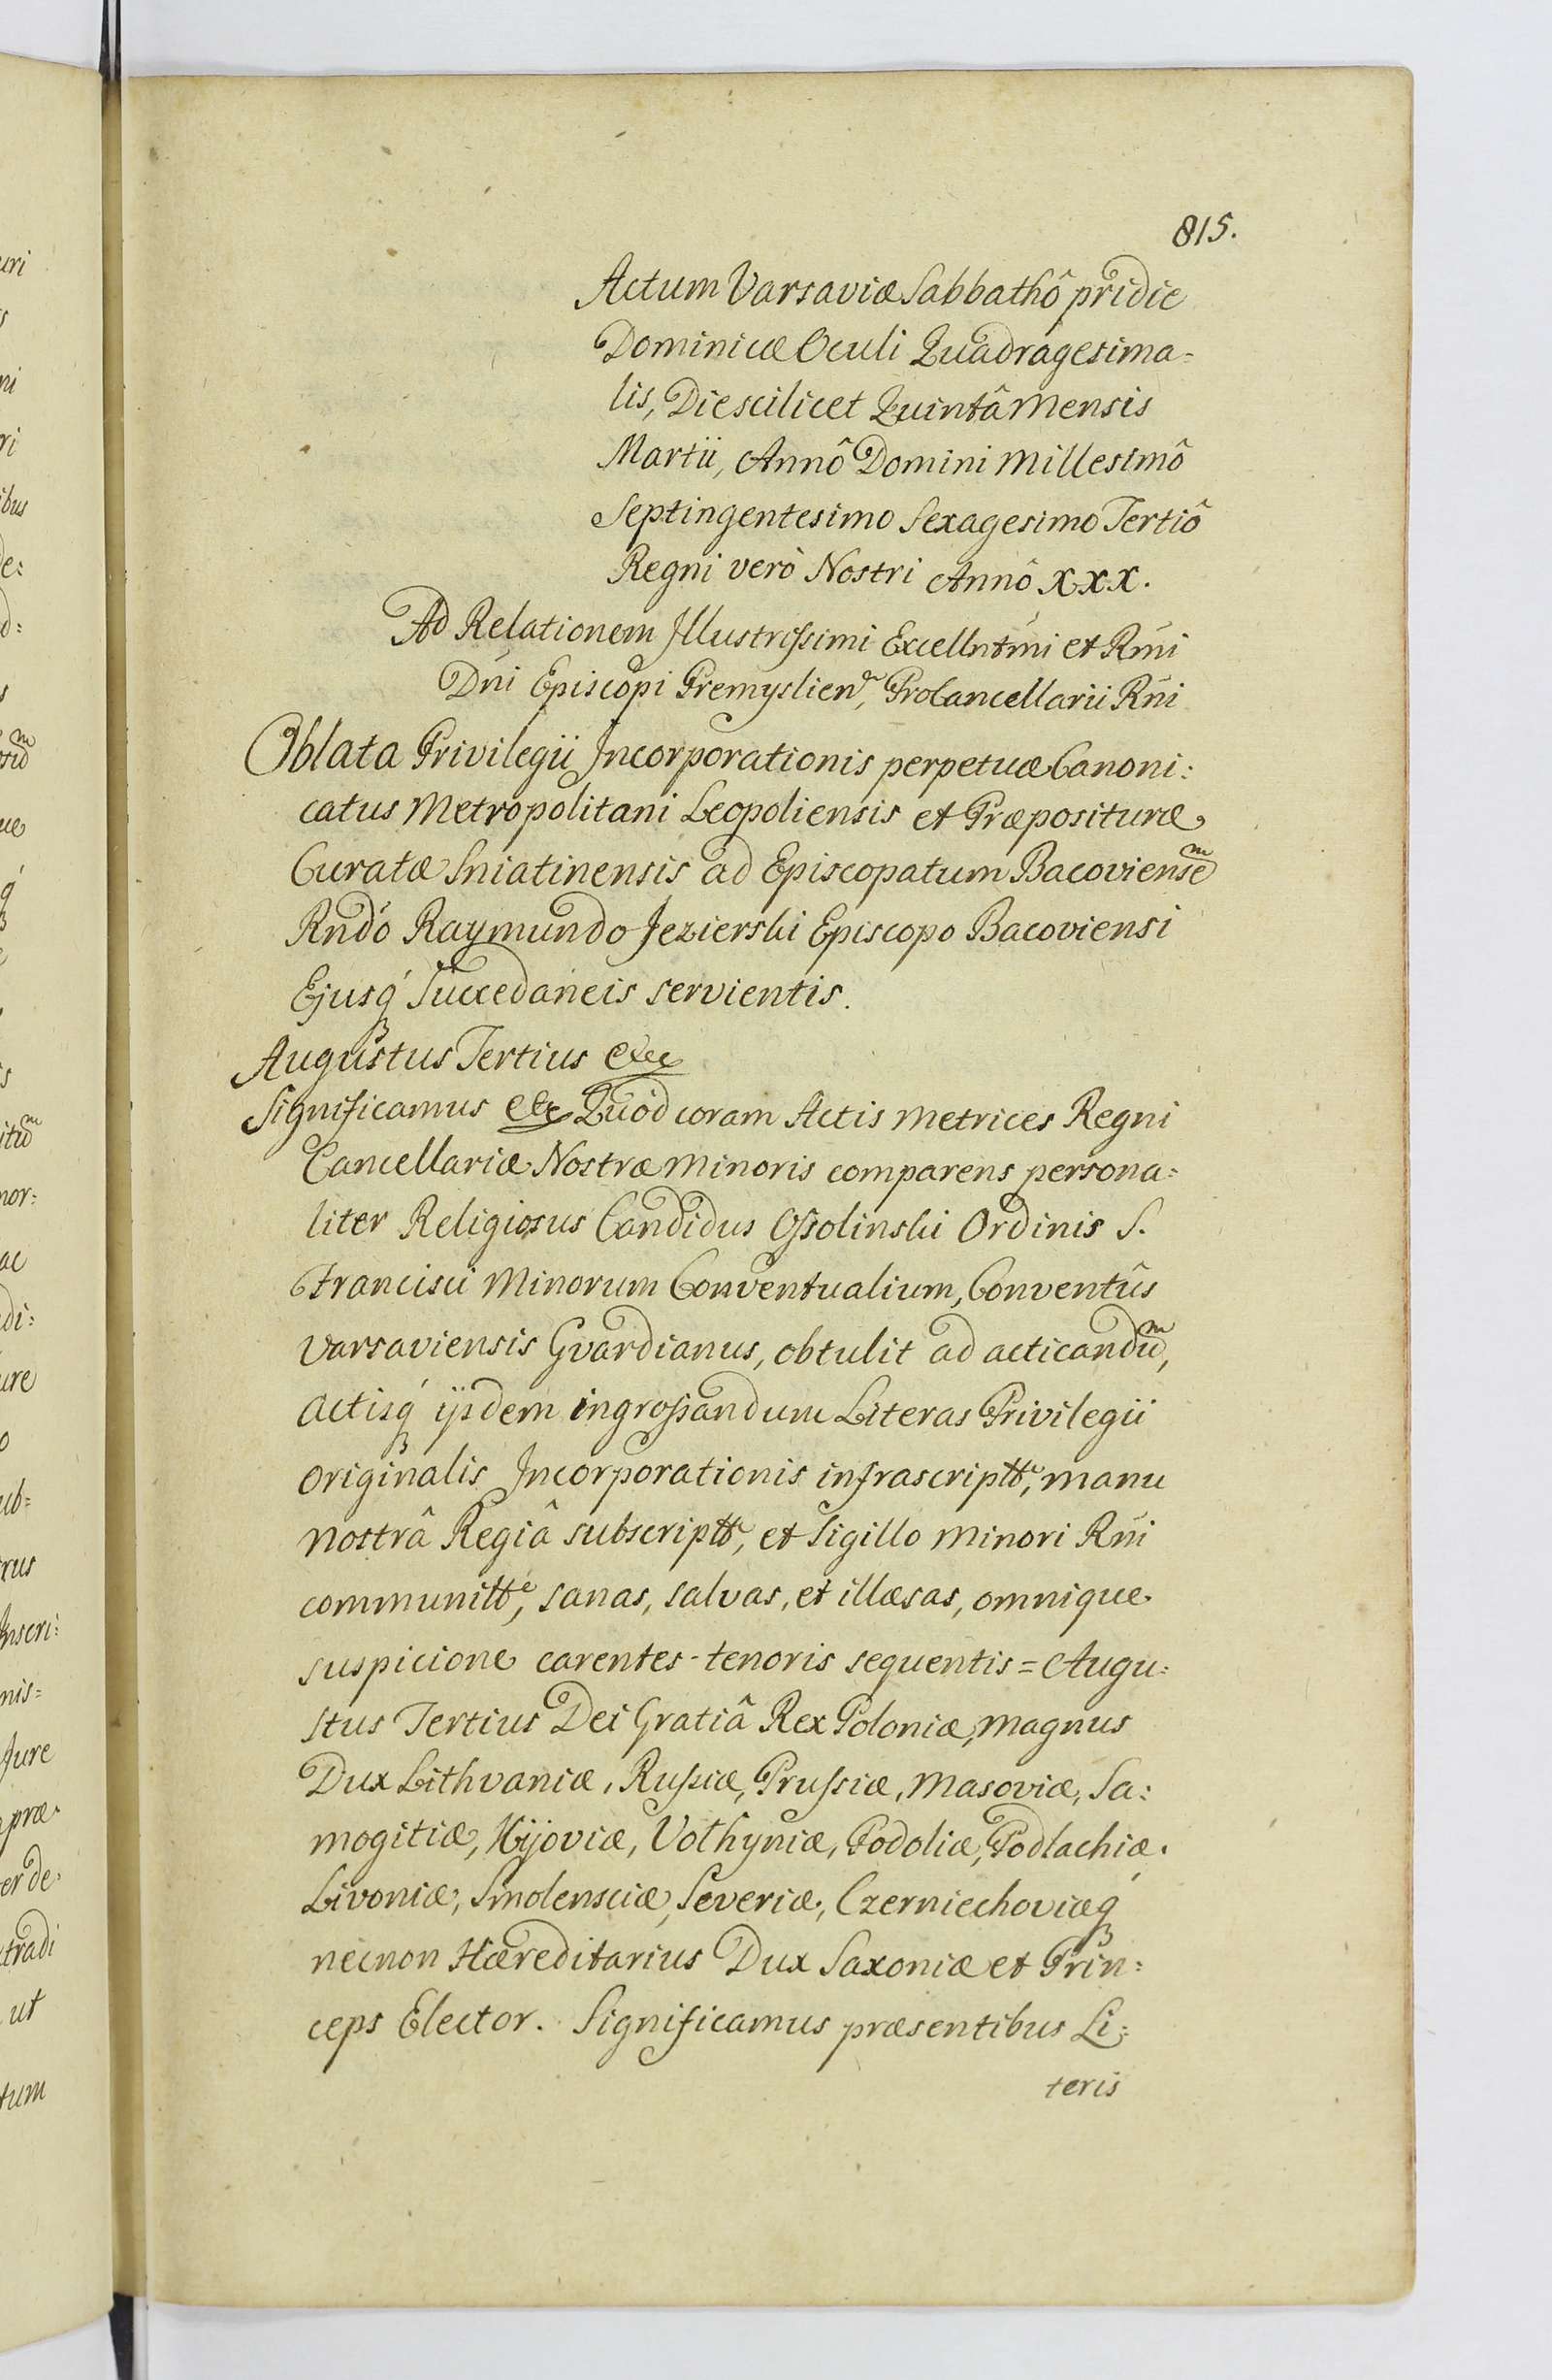 815.
Actum Varsaviæ Sabbathô pridie
Dominicæ Oculi Quadragesima=
lis, Die scilicet Quintâ Mensis
Martii, Annô Domini Millesimô
Septingentesimo Sexagesimo Tertiô
Regni verò Nostri Annô XXX.
Ad Relationem Jllustrissimi Excellntmi et Rmi
Dni Episcopi Premyslien, ProCancellarii Rni
Oblata Privilegii Jncorporationis perpetuæ Canoni:
catus Metropolitani Leopoliensis et Præposituræ
Curatæ Sniatinensis ad Episcopatum Bacoviensem
Rndo Raymundo Jezierski Episcopo Bacoviensi
Ejusq́ Succedaneis servientis.
Augustus Tertius etc
Significamus etc Quod coram Actis Metrices Regni
Cancellariæ Nostræ Minoris comparens persona=
liter Religiosus Candidus Ossolinski Ordinis S.
Francisci Minorum Conventualium, Conventûs
Varsaviensis Gvardianus, obtulit ad acticandum,
actisq́ ijsdem ingrossandum Literas Privilegii
originalis Jncorporationis infrascriptte, manu
nostrâ Regiâ subscriptte, et Sigillo Minori Rni
communitte, sanas, salvas, et illæsas, omnique
suspicione carentes - tenoris sequentis = Augu:
stus Tertius Dei Gratiâ Rex Poloniæ, Magnus
Dux Lithvaniæ, Russiæ, Prussiæ, Masoviæ, Sa:
mogitiæ, Kijoviæ, Volhyniæ, Podoliæ, Podlachiæ.
Livoniæ, Smolensciæ, Severiæ, Czerniechoviæq́
necnon Hæreditarius Dux Saxoniæ et Prin:
ceps Elector. Significamus præsentibus Li:
teris